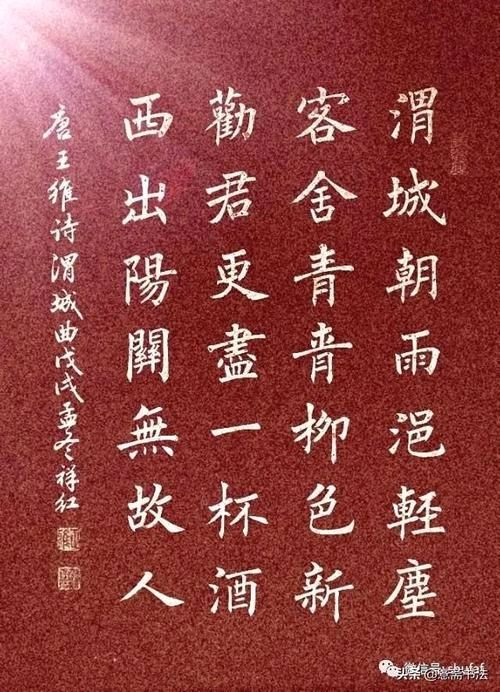 渭城朝雨浥軽塵
客舍青青柳色新
勸君更盡一杯酒
西出陽關無故人
唐王維诗渭城曲戊戌孟冬祥红
微信号: shufaf
头条@意斋书法